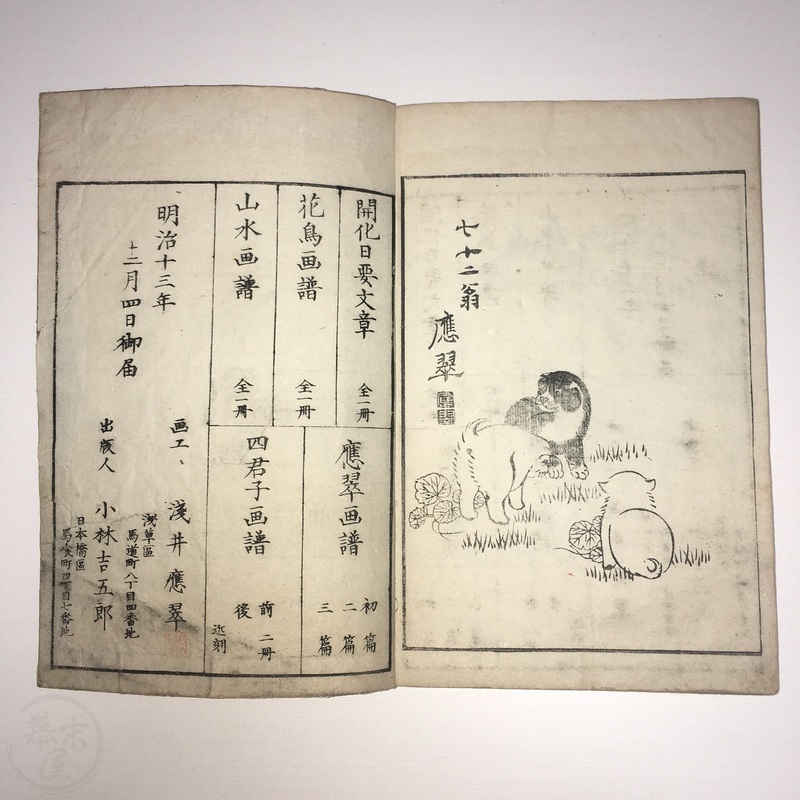 七十二翁
應翠
開化日要文章 全一冊
花鳥画譜 全一冊
山水画譜 全一冊
應翠画譜 初篇
二篇
三篇
四君子画譜 前 二冊
後
近刻
明治十三年
十二月四日御届
画工 淺井應翠
淺草區
馬道町八丁目四番地
出版人 小林吉五郎
日本橋區
馬喰町四丁目七番地
幕末屋